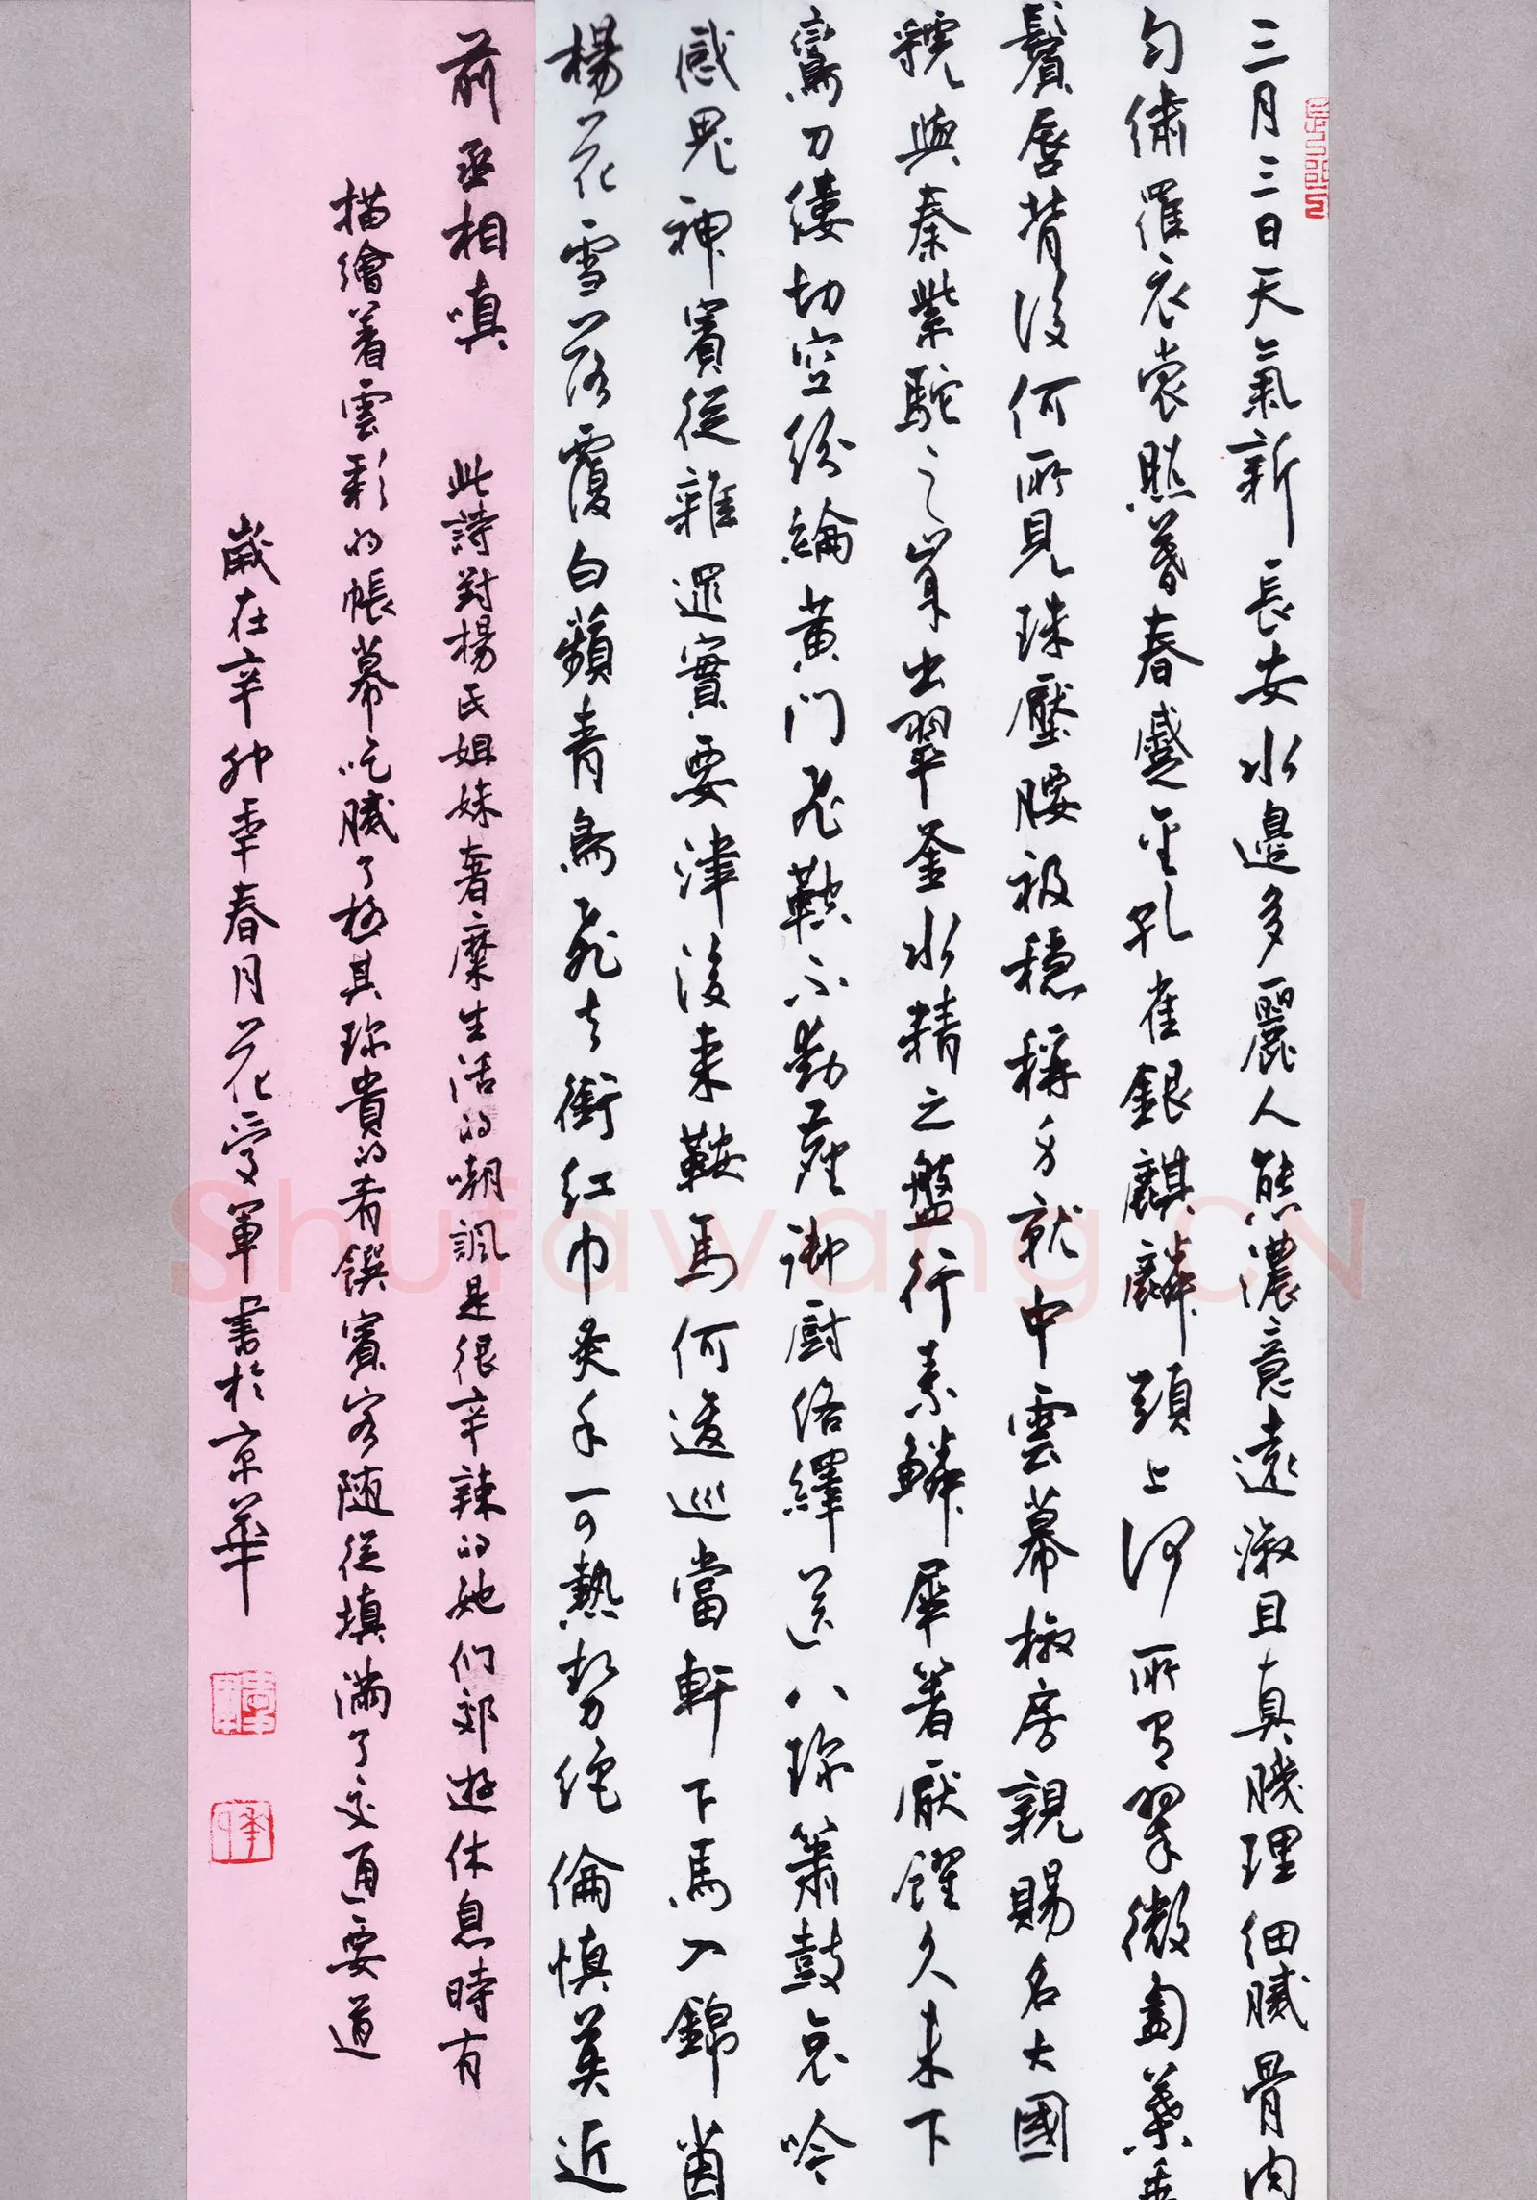 三月三日天氣新長安水邊多麗人態濃意遠淑且真膩理細膩骨肉
勻繡羅衣裳照暮春蹙金孔雀銀麒麟頭上何所有翠微匎葉垂
鬢唇背後何所見珠壓腰衱穩稱身就中雲幕椒房親賜名大國
虢與秦紫駝之峯出翠釜水精之盤行素鱗犀箸厭飫久未下
鸞刀縷切空紛綸黃门飛鞚不動塵御厨络繹送八珍簫鼓哀吟
感鬼神賓從雜遝實要津後來鞍馬何逡巡當軒下馬入錦茵
楊花雪落覆白蘋青鳥飛去銜红巾炙手可熱勢絕倫慎莫近
前丞相嗔 此詩對楊氏姐妹奢靡生活的嘲諷是很辛辣的她们郊遊休息時有
描繪着雲彩的帳幕吃膩了極其珍貴的肴饌賓客隨從填滿了交通要道
歲在辛卯年春月花
軍書於京華
Shufawang.CN